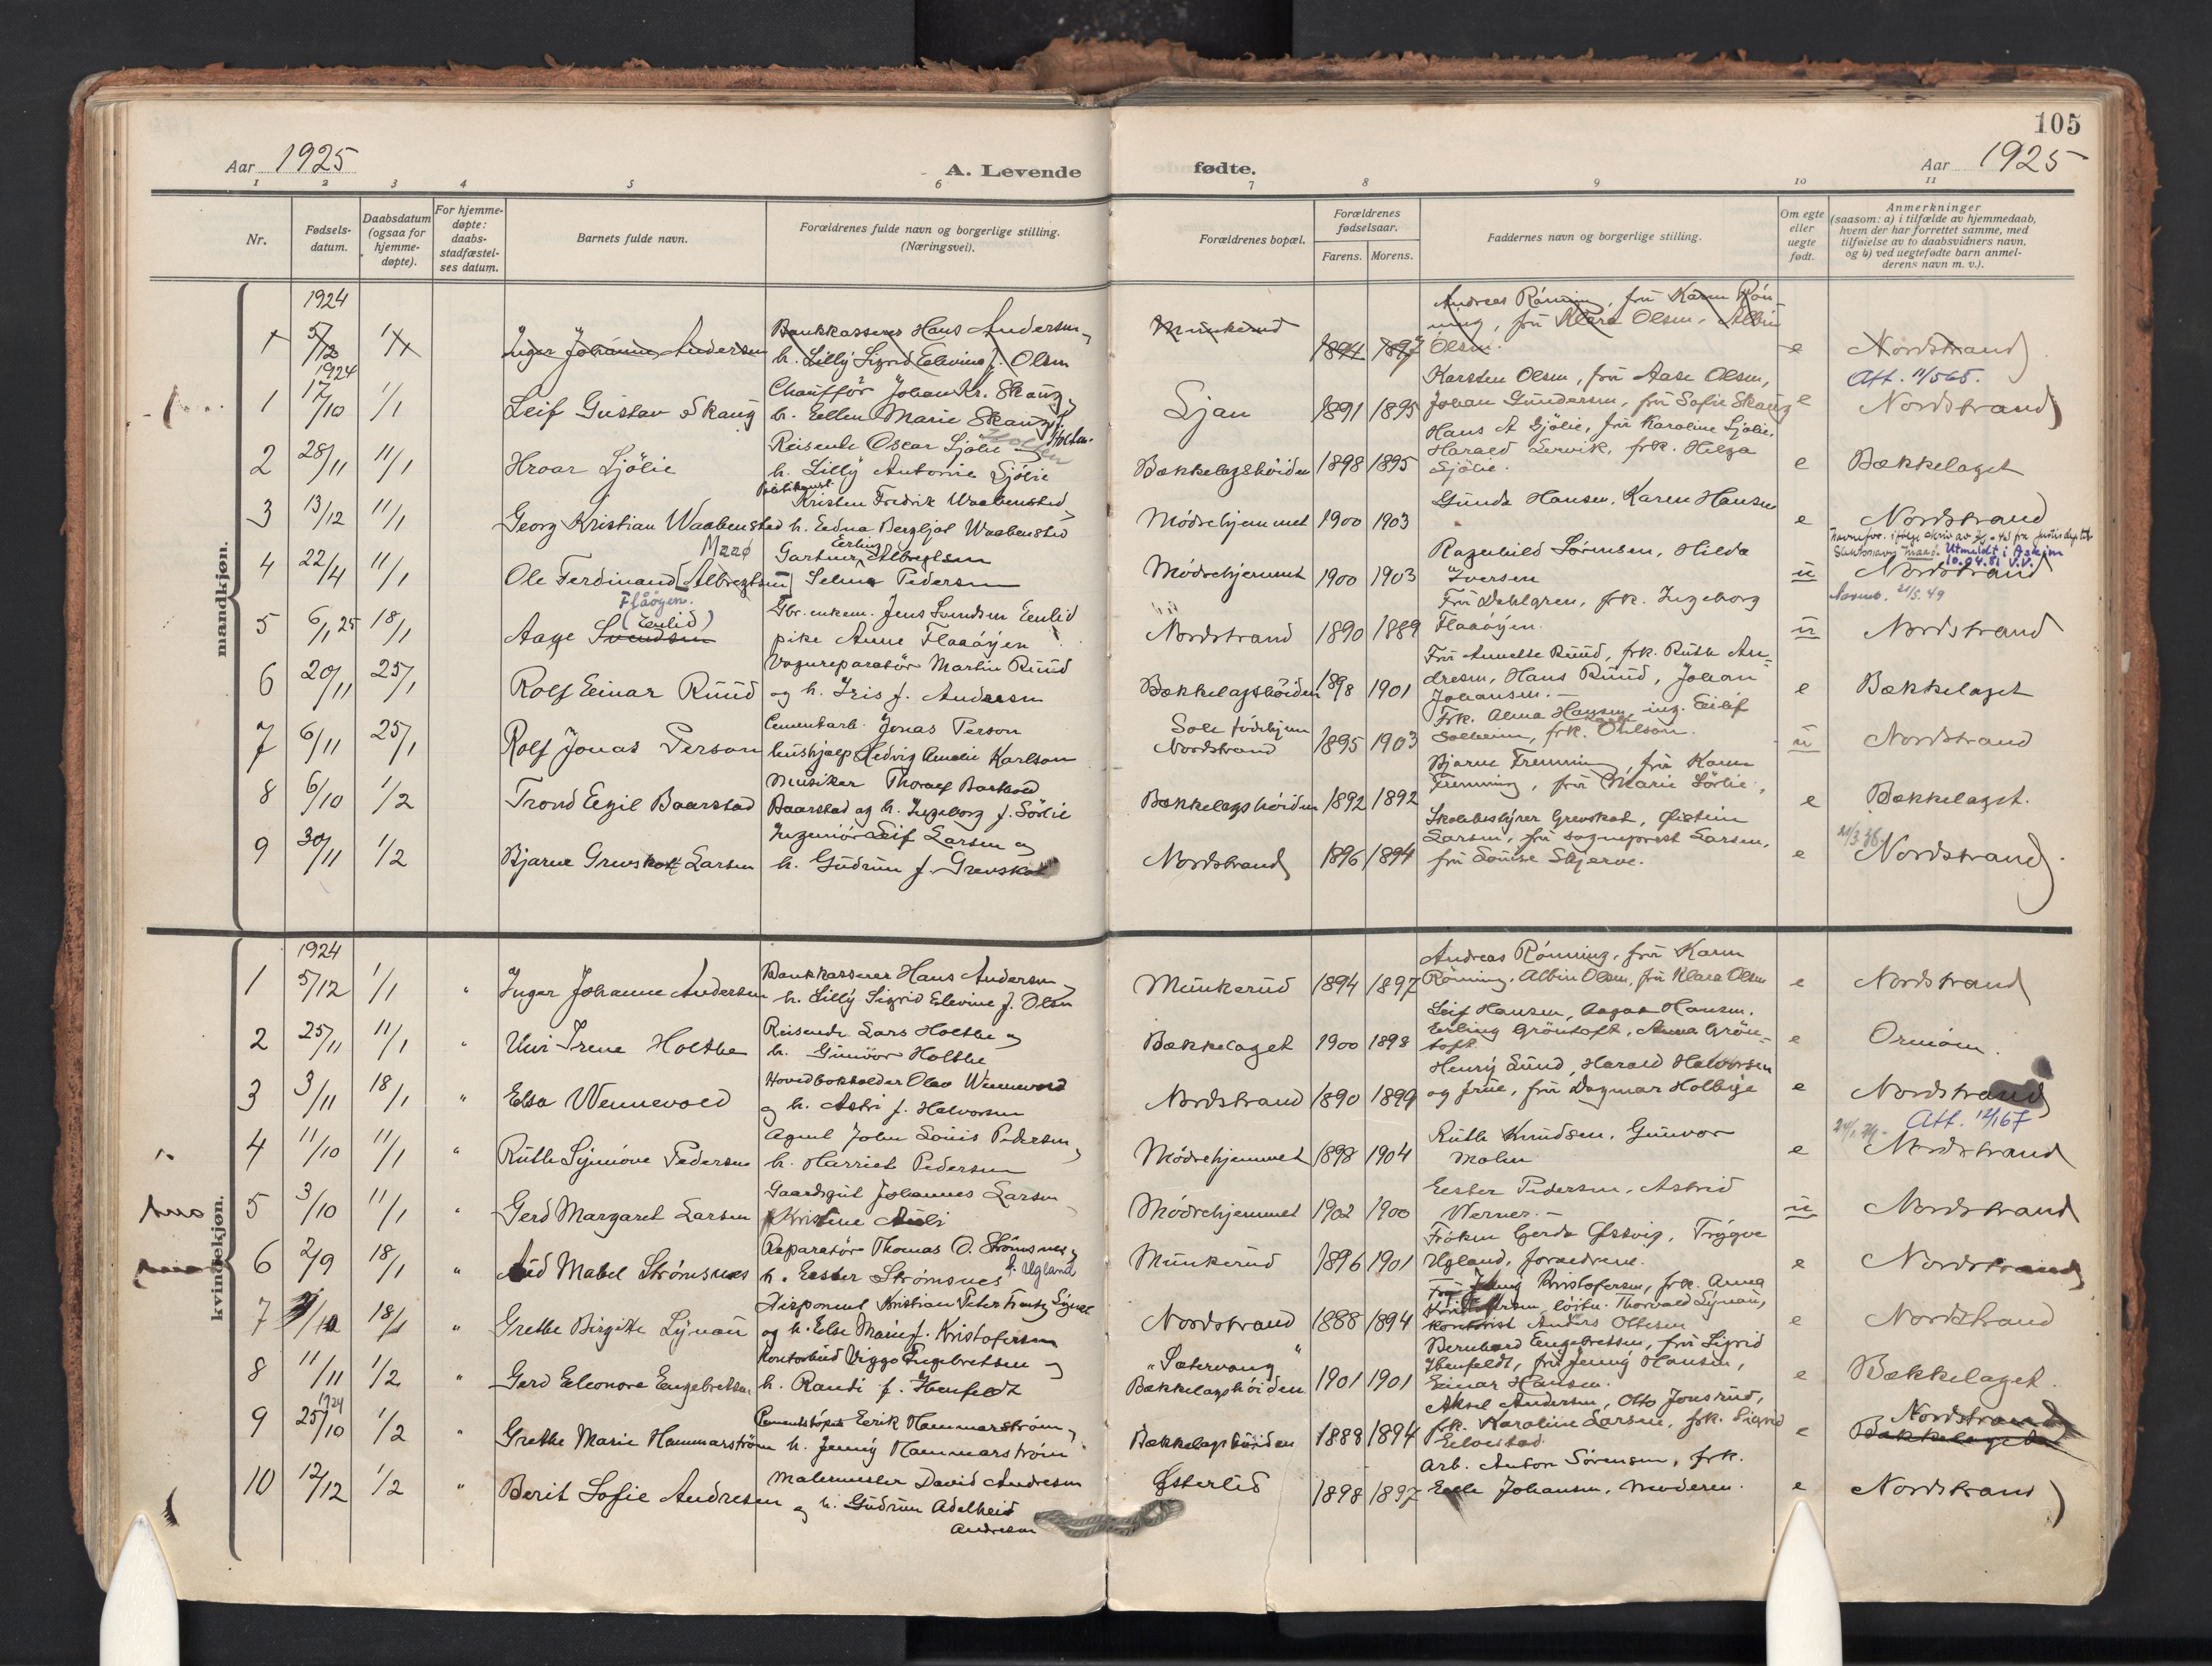 105
Aar 1925
A. Levende
fødte.
Aar 1925
1 2 3 4 5 6 7 8 9 10 11
Nr.
Fødsels-
datum.
Daabsdatum
(ogsaa for
hjemme-
døpte).
For hjemme-
døpte:
daabs-
stadfæstel-
ses datum.
Barnets fulde navn.
Forældrenes fulde navn og borgerlige stilling.
(Næringsvei).
Forældrenes bopæl.
Forældrenes
fødselsaar.
Farens. Morens.
Faddernes navn og borgerlige stilling.
Om egte
eller
uegte
født.
Anmerkninger
(saasom: a) i tilfælde av hjemmedaab,
hvem der har forrettet samme, med
tilføielse av to daabsvidners navn,
og b) ved uegtefødte barn anmel-
derens navn m. v.).
mandkjøn.
1924
1 5/12 1/1 Inger Johanne Andersen
Bankkasserer Hans Andersen,
h. Lilly Sigrid Elevine f. Olsen
Munkerud 1894 1897
Andreas Rönning, fru Karen Rön-
ning, fru Klara Olsen, Albin
Olsen.
e Nordstrand
1924
1 17/10 1/1 Leif Gustav Skaug
Chauffør Johan Kr. Skaug,
h. Ellen Marie Skaug f. Holten
Ljan 1891 1895
Karsten Olsen, fru Aase Olsen,
Johan Gundersen, fru Sofie Skaug
e Att. 11/565.
Nordstrand
2 28/11 11/1 Hroar Sjölie
Reisende Oscar Sjölie
h. Lilly Antonie Sjölie
Bækkelagshöiden 1898 1895
Hans A Sjölie, fru Karoline Sjölie,
Harald Lervik, frk. Helga
Sjölie.
e Bækkelaget
3 13/12 11/1 Georg Kristian Waabensted
Kristen Fredrik Waabensted
h. Edna Bergljot Waabensted
Mödrehjemmet 1900 1903
Gunda Hansen, Karen Hansen
e Nordstrand
4 22/4 11/1 Ole Ferdinand [Albregtsen] Maaø
Gartner Erling Albregtsen
Selma Pedersen
Mödrehjemmet 1900 1903
Ragnhild Sörensen, Hilda
Iversen
u Utmeldt i Askim
10.04.81 V.V.
Nordstrand
5 6/1 25 18/1 Aage Svendsen (Enlid) Flåöyen.
Gbr. enkem. Jens Svendsen Enlid
pike Anne Flaaöyen
Nordstrand 1890 1889
Fru Dahlgren, frk. Ingeborg
Flaaöyen.
u Navneb. 21/5. 49
Nordstrand
6 20/11 25/1 Rolf Einar Ruud
Vognreparatör Martin Ruud
og h. Iris f. Andresen
Bækkelagshöiden 1898 1901
Fru Annette Ruud, frk. Ruth An-
dresen, Hans Ruud, Johan
Johansen.
e Bækkelaget
7 6/11 25/1 Rolf Jonas Person
Cementarb. Jonas Person
hushjælp Hedvig Amalie Karlson
Sole födehjem
Nordstrand 1895 1903
Frk. Alma Hansen, ing. Eilif
Solheim, frk. Ohlson.
u Nordstrand
8 6/10 1/2 Trond Egil Baarstad
Musiker Thoralf Barthold
Baarstad og h. Ingeborg f. Sörlie
Bækkelagshöiden 1892 1892
Bjarne Fremming, fru Karen
Fremming, fru Marie Sörlie,
e Bækkelaget.
9 30/11 1/2 Bjarne Grevskott Larsen
Ingeniör Leif Larsen og
h. Gudrun f. Grevskot
Nordstrand 1896 1894
Skolebestyrer Grevskot, Øistein
Larsen, fru sogneprest Larsen,
fru Louise Skjerve.
e Nordstrand
kvindekjøn.
1924
1 5/12 1/1 " Inger Johanne Andersen
Bankkasserer Hans Andersen,
h. Lilly Sigrid Elevine f. Olsen
Munkerud 1894 1897
Andreas Rönning, fru Karen
Rönning, Albin Olsen, fru Klara Olsen
e Nordstrand
2 25/11 11/1 " Uni Irene Holthe
Reisende Lars Holthe og
h. Gunvor Holthe
Bækkelaget 1900 1898
Leif Hansen, Aagot Hansen,
Erling Gröntoft, Anna Grön-
toft
e Ormöen.
3 3/11 18/1 " Elsa Wennevold
Hovedbokholder Olav Wennevold
og h. Astri f. Halvorsen
Nordstrand 1890 1899
Henry Lund, Harald Halvorsen
og frue, fru Dagmar Holbye
e Nordstrand
4 11/10 11/1 " Ruth Synnöve Pedersen
Agent John Louis Pedersen,
h. Harriet Pedersen
Mödrehjemmet 1898 1904
Ruth Knudsen, Gunvor
Malm
e Att. 12/167
Nordstrand
5 3/10 11/1 " Gerd Margaret Larsen
Gaardsgut Johannes Larsen
Kristine Auli
Mödrehjemmet 1902 1900
Ester Pedersen, Astrid
Werner.
u Nordstrand
6 2/9 18/1 " Aud Mabel Strömsnes
Reparatör Thomas O. Strömsnes,
h. Ester Strömsnes f. Ugland
Munkerud 1896 1901
Fröken Gerda Østvig, Trygve
Ugland, forældrene.
e Nordstrand
7 18/1 " Grethe Birgitte Lynau
Disponent Kristian Peter Frantz Lynau
og h. Else Marie f. Kristofersen
Nordstrand 1888 1894
Fru Jenny Kristofersen, frk. Anna
Kristofersen, löitn. Thorvald Lynau,
kontorist Anders Ottesen
e Nordstrand
8 11/11 1/2 " Gerd Eleonore Engebretsen
Kontorbud Viggo Engebretsen og
h. Randi f. Ibenfeldt
"Sætervang"
Bækkelagshöiden 1901 1901
Bernhard Engebretsen, fru Sigrid
Ibenfeldt, fru Jenny Hansen,
Einar Hansen.
e Bækkelaget.
1924
9 25/10 1/2 " Grethe Marie Hammarström
Cementstöper Eerik Hammarström,
h. Jenny Hammarström
Bækkelagshöiden 1888 1894
Aksel Andersen, Otto Jonsrud,
frk. Karoline Larsen, frk. Sigrid
Eilvestad.
e Nordstrand
Bækkelaget
10 12/12 1/2 " Berit Sofie Andresen
Malermester David Andresen
og h. Gudrun Adelheid
Andresen
Østerlid 1898 1897
Arb. Anton Sörensen, frk.
Elle Johansen, moderen.
e Nordstrand